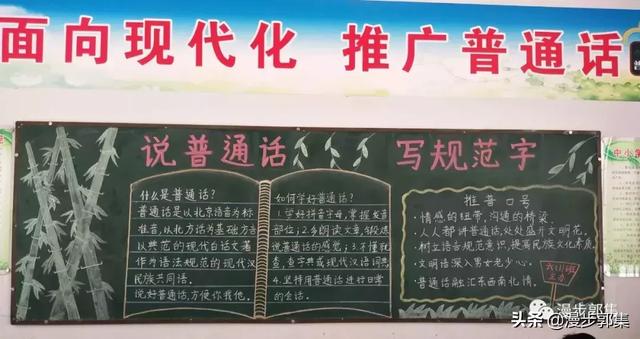 面向现代化 推广普通话
说普通话
写规范字
什么是普通话?
普通话是以北京语音为标
准音,以北方话为基础方言
以典范的现代白话文著
作为语法规范的现代汉
民族共同语。
说好普通话,方便你我他。
如何学好普通话?
1.学好拼音字母,掌握发音
部位;2.多朗读文章,多练
说普通话的感觉;3.不懂就
查,查字典或现代汉语词典
4.坚持用普通话进行日常
的会话。
推普口号
·情感的纽带,沟通的桥梁。
·人人都讲普通话,处处盛开文明花。
·树立语言规范意识,提高民族文化素质。
·文明语深入男女老少心。
·普通话融汇东西南北情。
主办
中小学
漫步郭集
头条 @漫步郭集